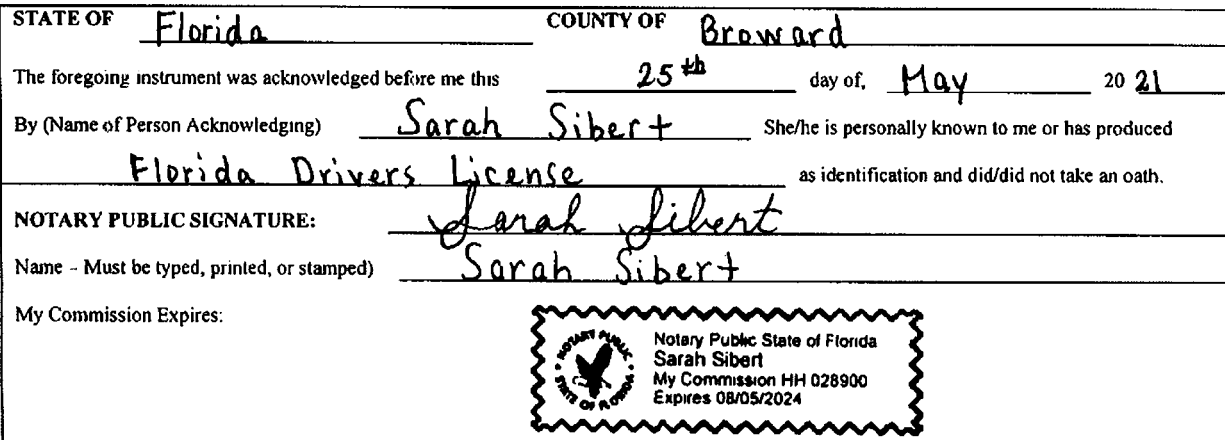 STATE OF Florida COUNTY OF Broward
The foregoing instrument was acknowledged before me this 25th day of, May 20 21
By (Name of Person Acknowledging) Sarah Sibert She/he is personally known to me or has produced
Florida Drivers License as identification and did/did not take an oath.
NOTARY PUBLIC SIGNATURE: Sarah Sibert
Name - Must be typed, printed, or stamped) Sarah Sibert
My Commission Expires:
NOTARY PUBLIC
STATE OF FLORIDA
Notary Public State of Florida
Sarah Sibert
My Commission HH 028900
Expires 08/05/2024